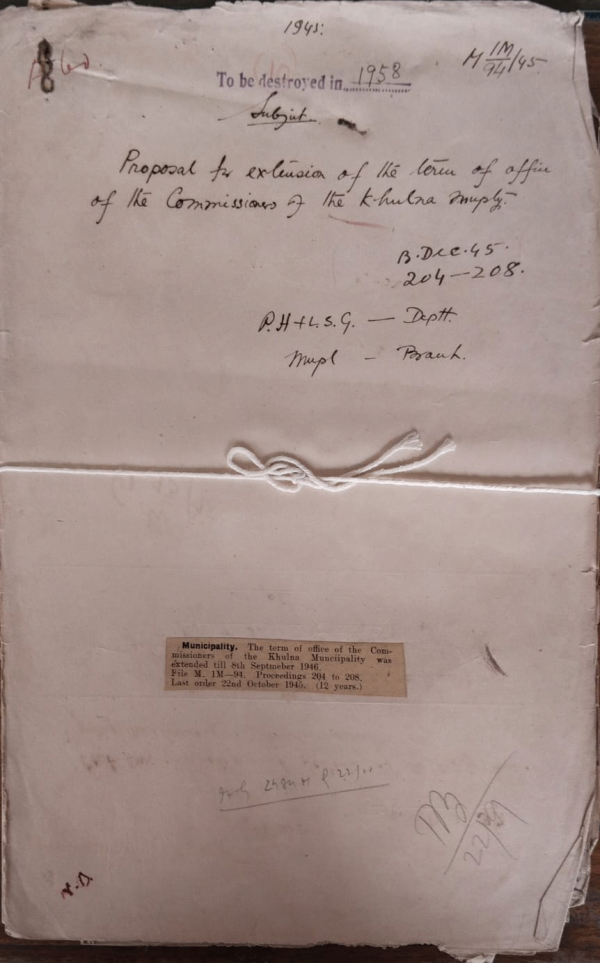 1945.
M 1M/94/45
To be destroyed in 1958
Subject
Proposal for extension of the term of office
of the Commissioners of the Khulna Muplty.
B. Dec. 45.
204—208.
P.H + L.S.G. — Deptt.
Mupl — Branch.
Municipality. The term of office of the Com-
missioners of the Khulna Munciipality was
extended till 8th Septmeber 1946.
File M. 1M—94. Proceedings 204 to 208.
Last order 22nd October 1945. (12 years.)